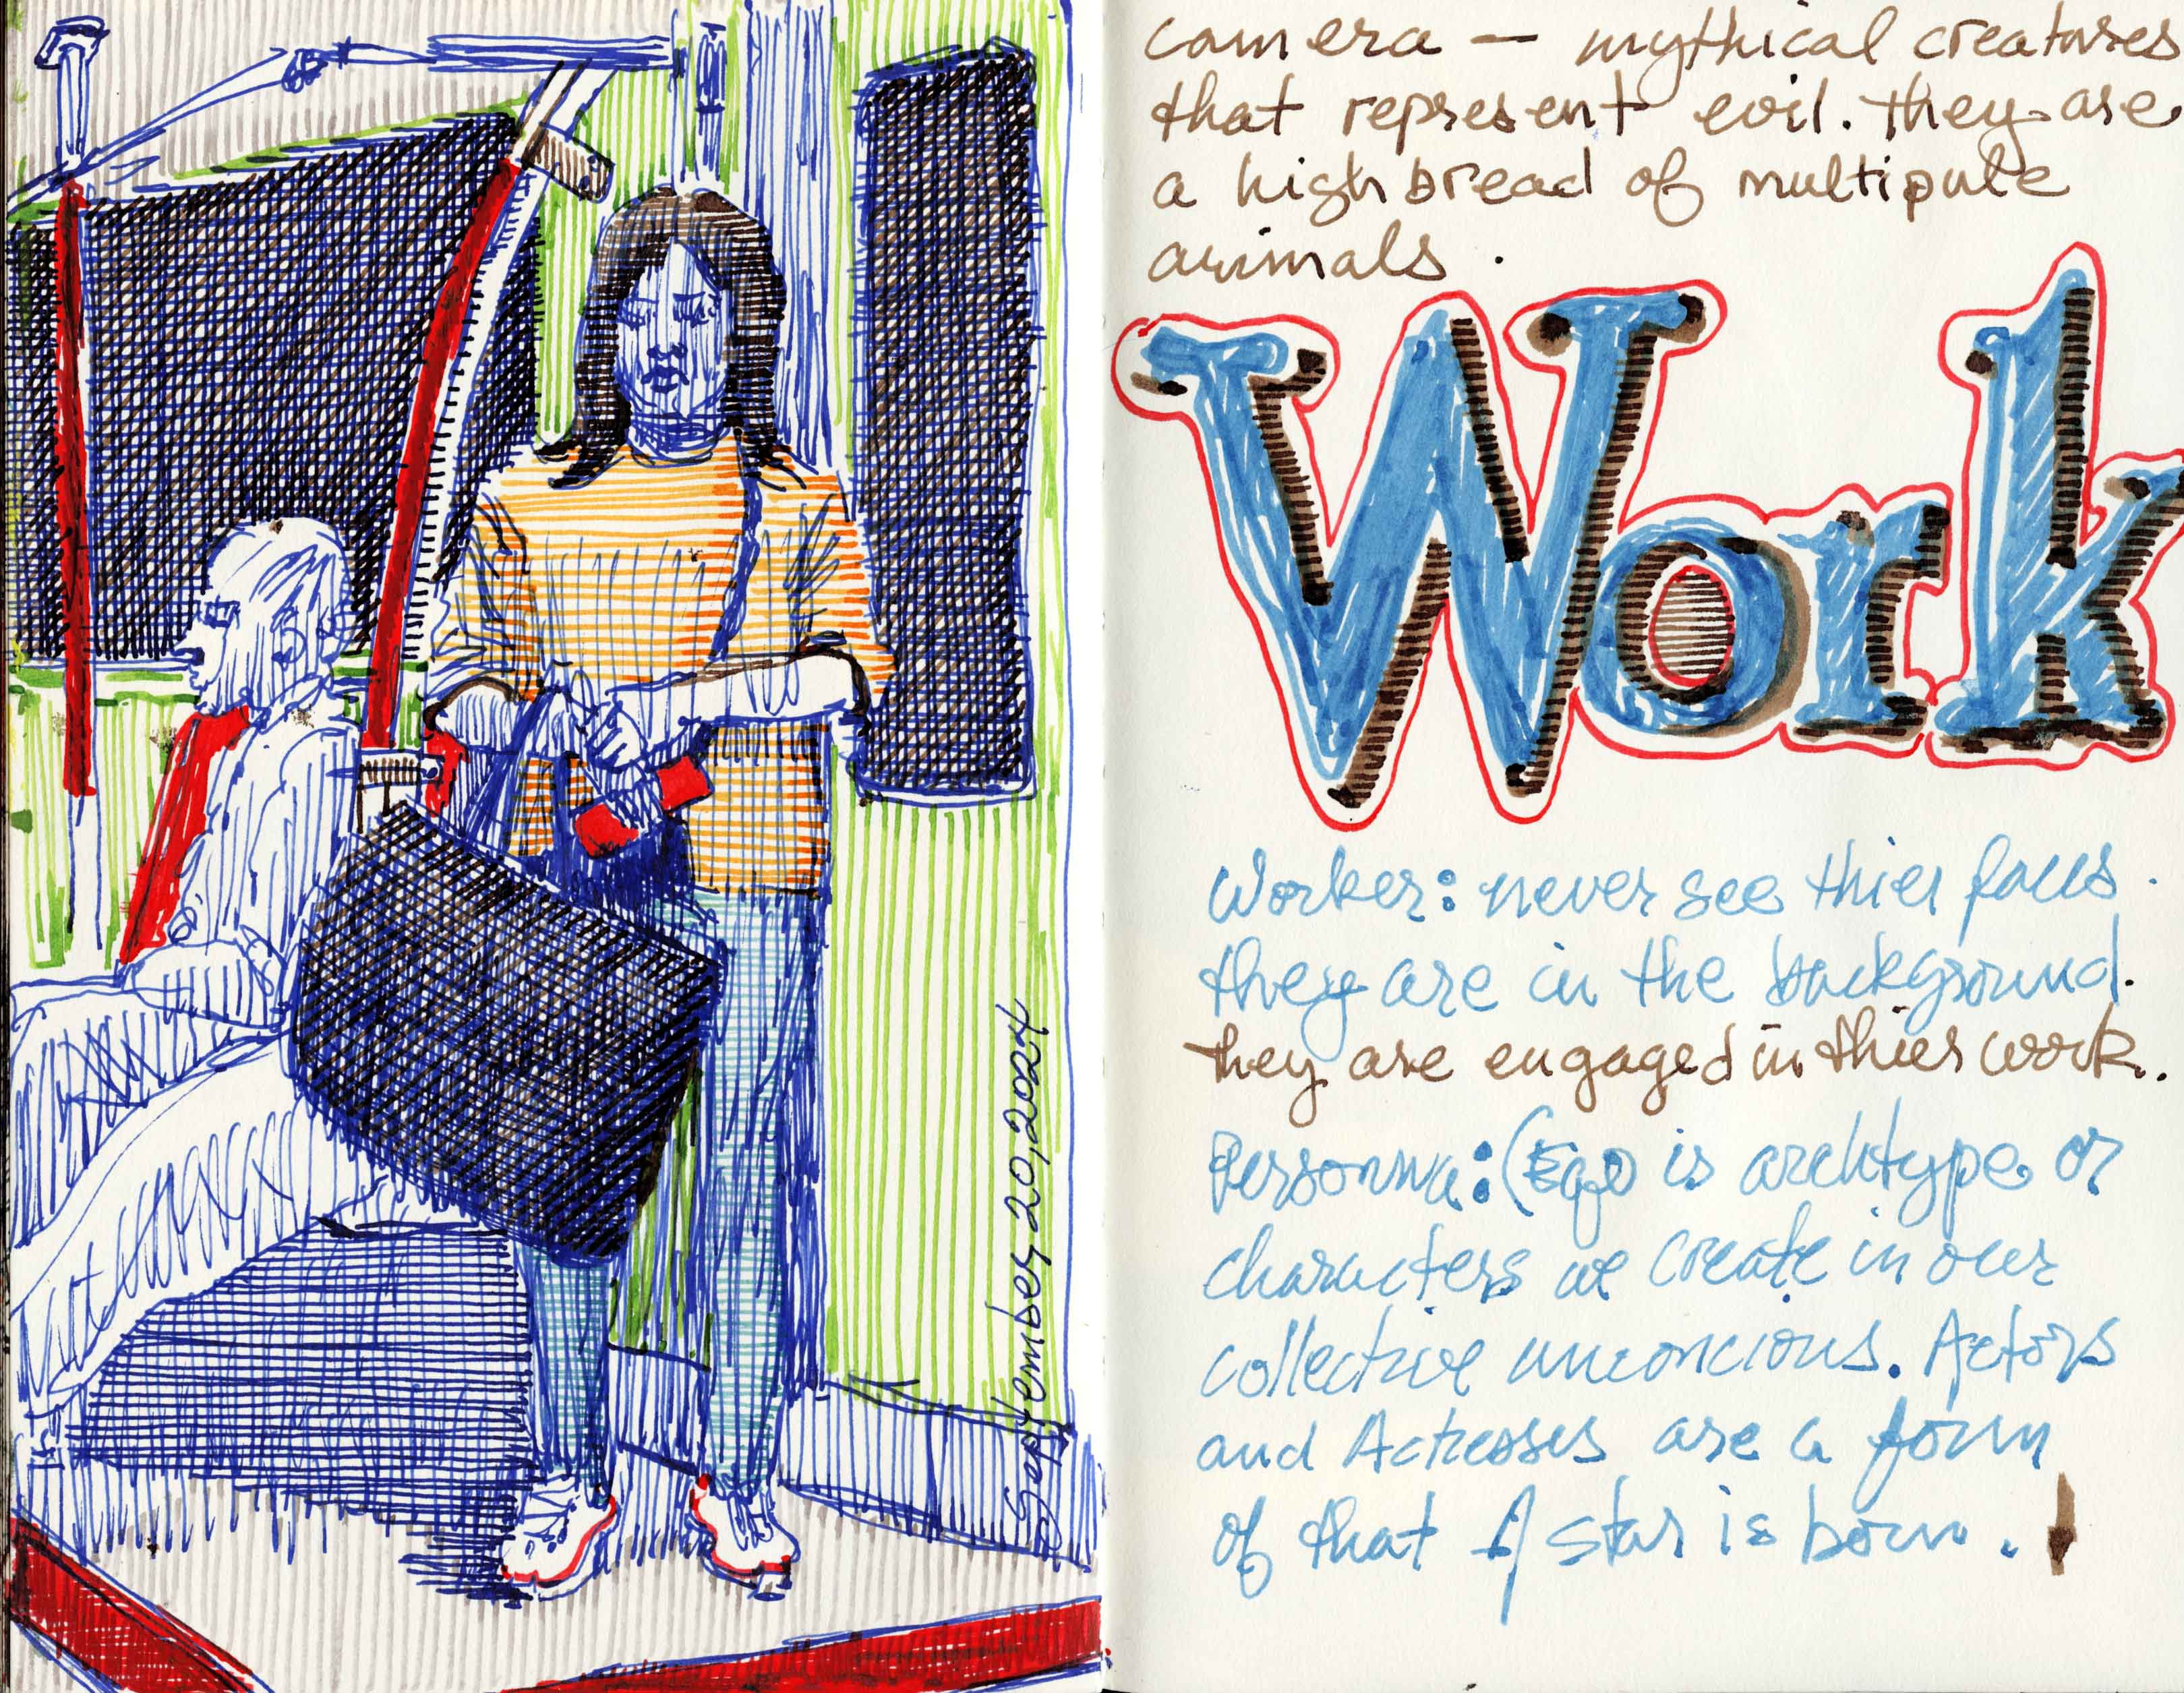 September 20, 2024
camera — mythical creatures
that represent evil. they are
a high bread of multipule
animals.
Work
Worker: never see thier faces.
they are in the background.
they are engaged in thier work.
Personna: (Ego is archtype or
characters we create in our
collective unconcious. Actors
and Actresses are a form
of that A star is born.